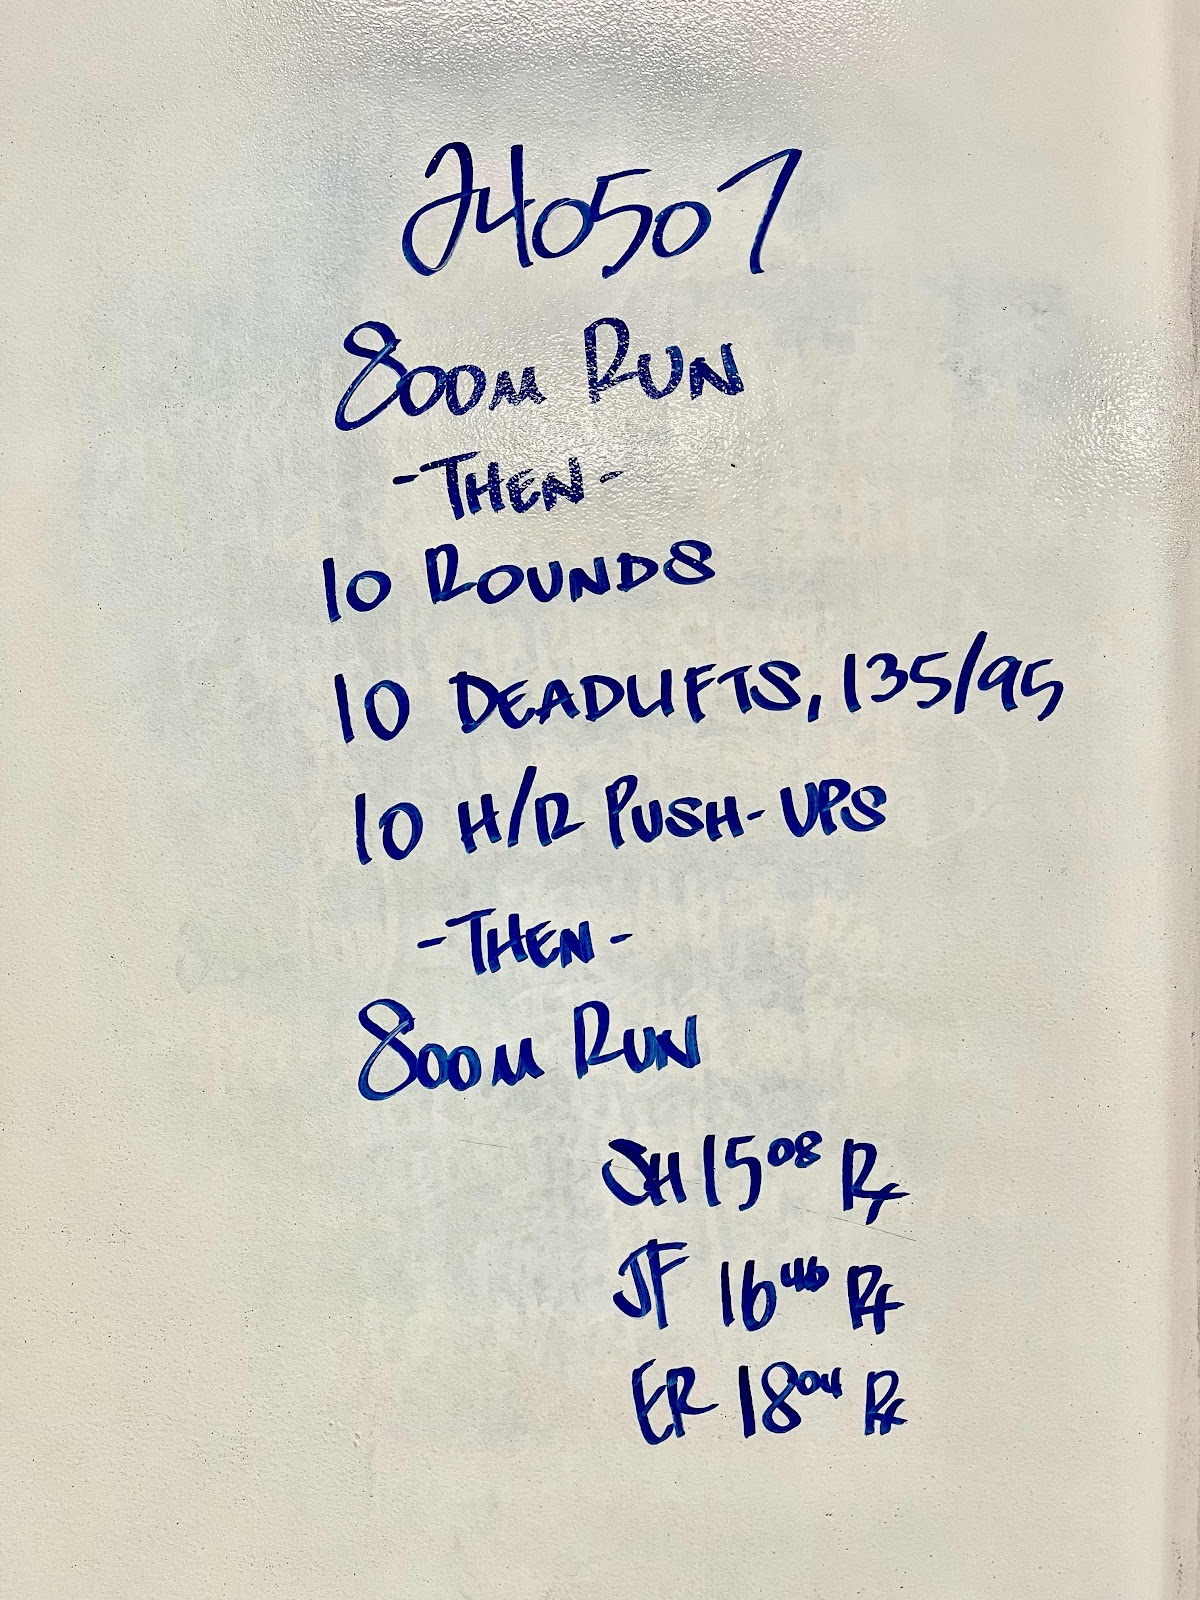 240507
800M RUN
-THEN-
10 ROUNDS
10 DEADLIFTS, 135/95
10 H/R PUSH-UPS
-THEN-
800M RUN
SH 15 08 Rx
JF 16 46 Rx
ER 18 04 Rx